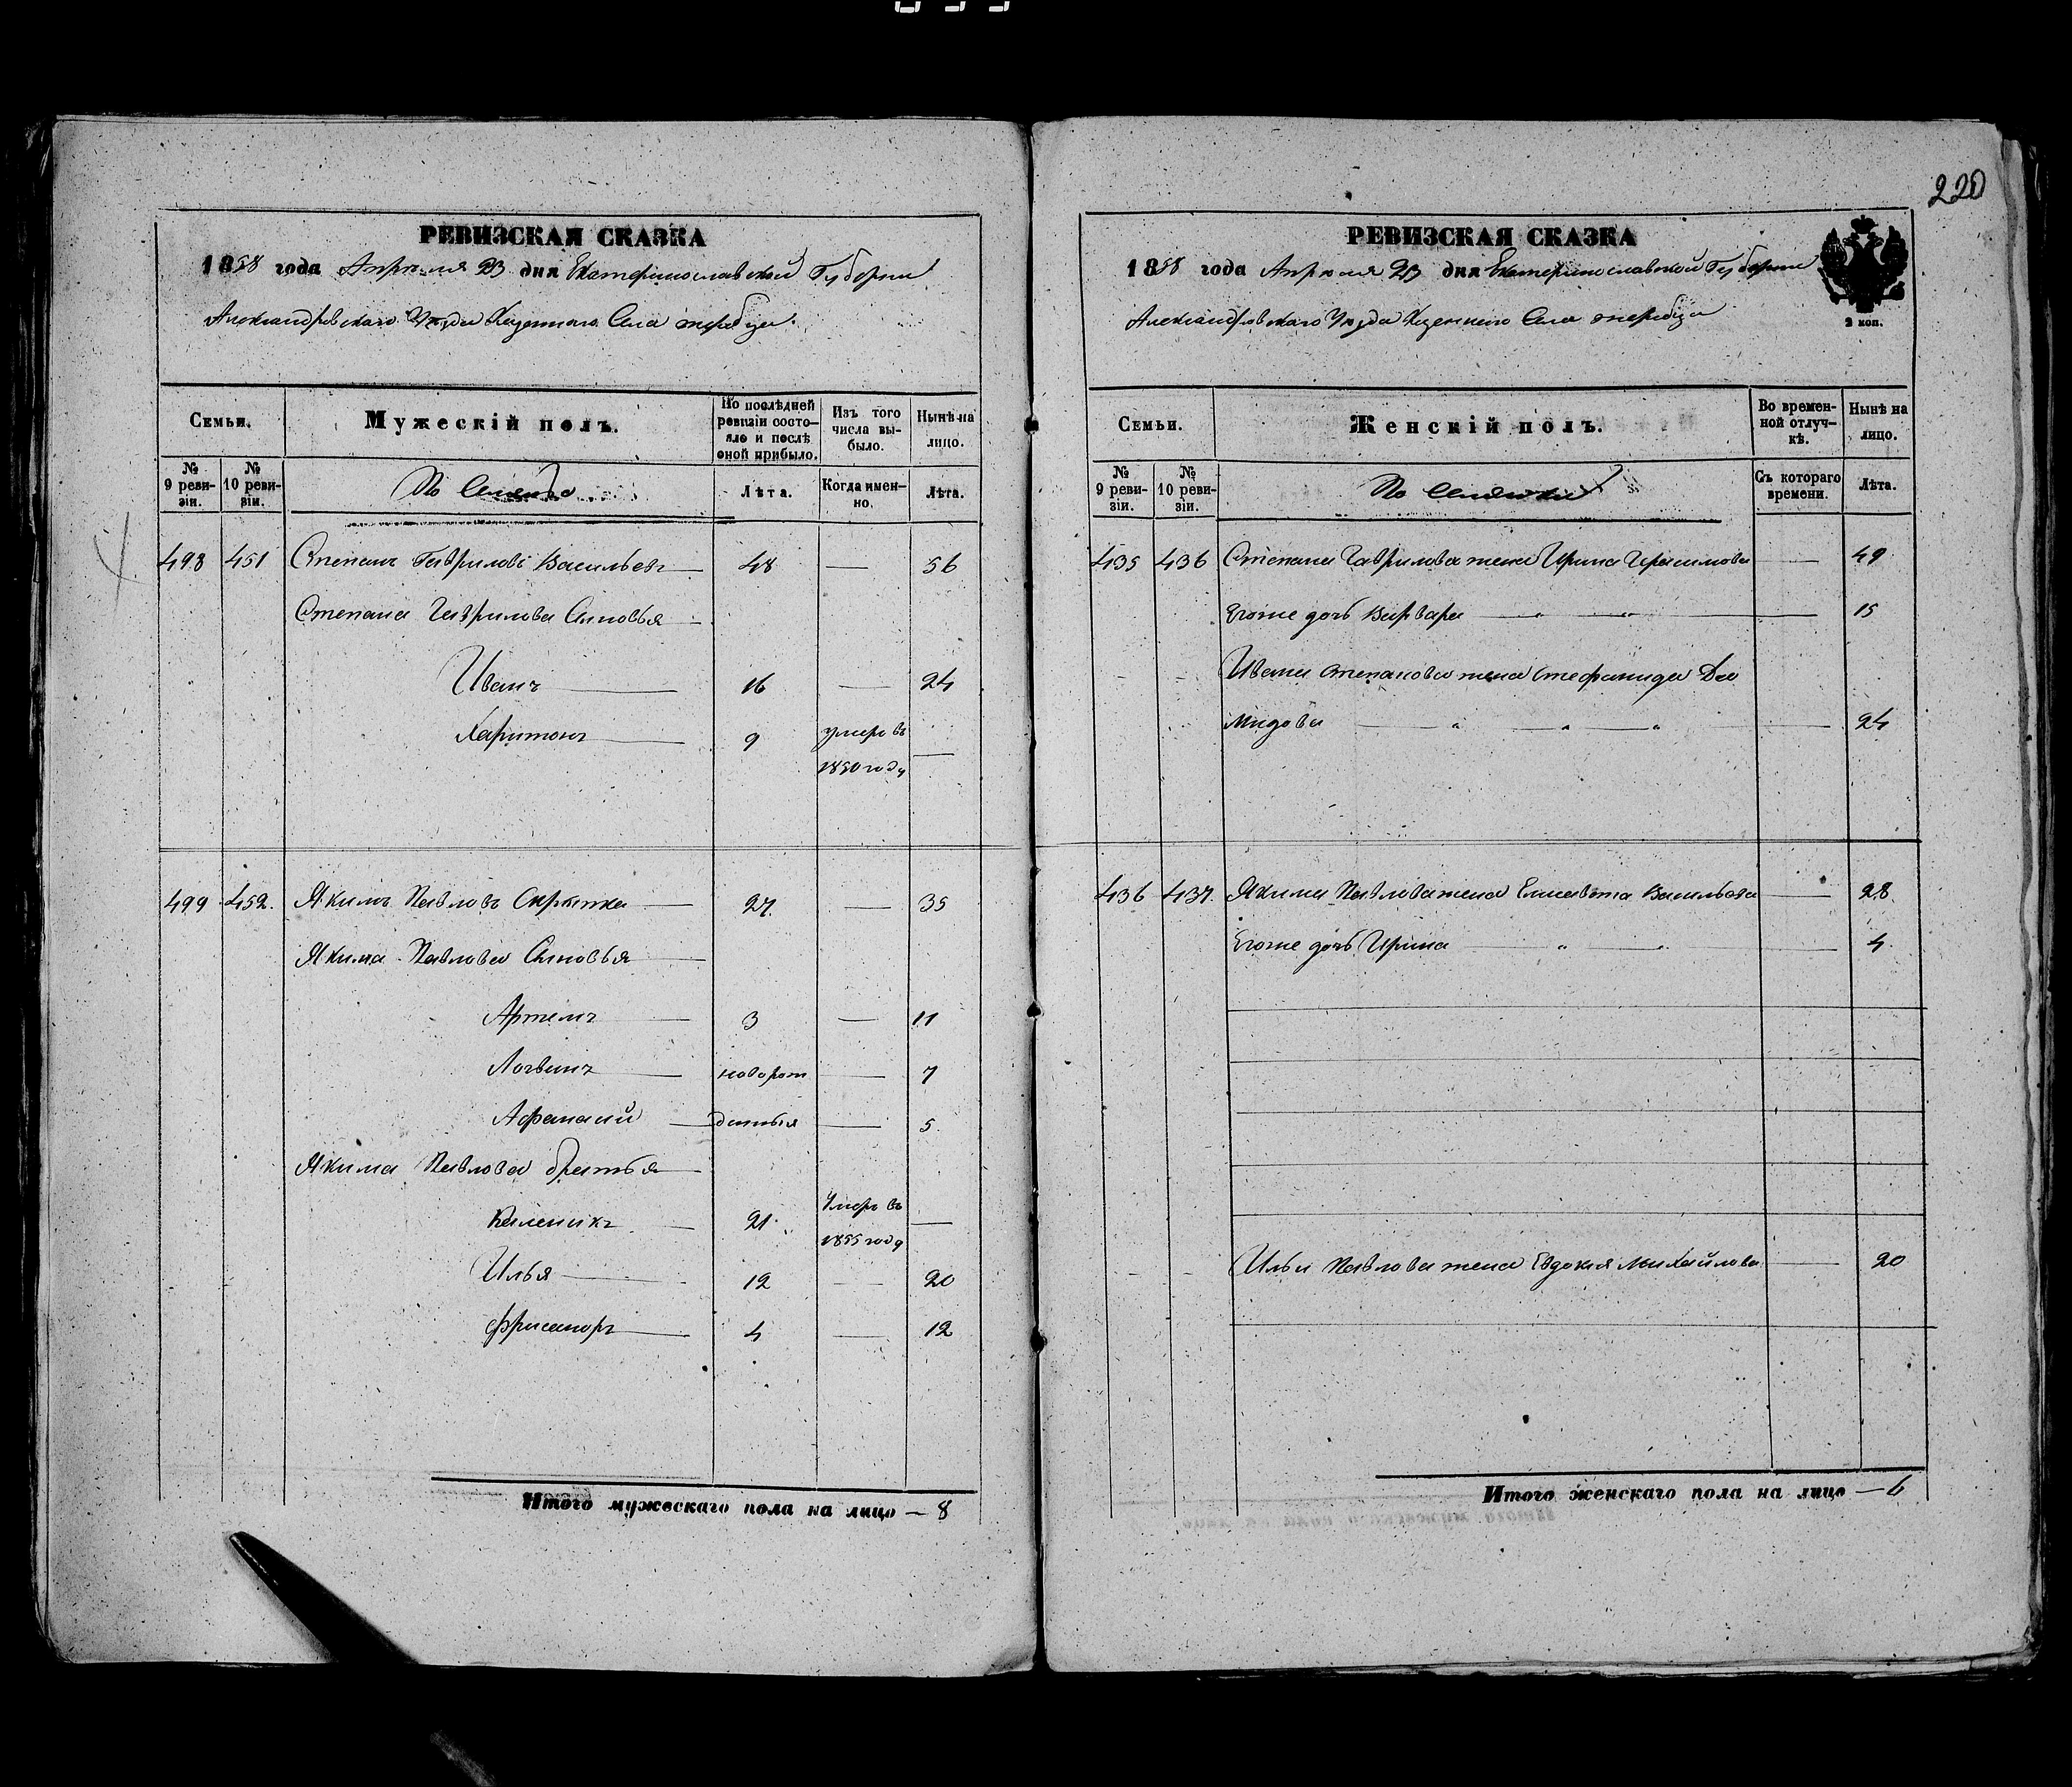 220
РЕВИЗСКАЯ СКАЗКА
1858 года Апреля 23 дня Екатеринославской Губернии
Александровскаго Уезда Казеннаго Села Жеребца
Семьи.
Мужескій полъ.
По послѣдней ревизіи состояло и послѣ оной прибыло.
Изъ того числа выбыло.
Нынѣ на лицо.
№ 9 ревизіи.
№ 10 ревизіи.
Лѣта.
Когда именно.
Лѣта.
498 451 Степанъ Гавриловъ Васильевъ 48 — 56
Степана Гаврилова Сыновья
Иванъ 16 — 24
Харитонъ 9 умеръ въ 1850 году —
499 452. Якимъ Павловъ Скрыпка 27. — 35
Якима Павлова Сыновья
Артемъ 3 — 11
Логвинъ новорож — 7
Афанасий денныя — 5.
Якима Павлова братья
Каленикъ 21. Умеръ въ 1855 году —
Илья 12 — 20
Фрисанфъ 4 — 12
Итого мужескаго пола на лицо — 8
РЕВИЗСКАЯ СКАЗКА
1858 года Апреля 23 дня Екатеринославской Губернии
Александровскаго Уезда Казеннаго Села Жеребца
2 коп.
Семьи.
Женскій полъ.
Во временной отлучкѣ.
Нынѣ на лицо.
№ 9 ревизіи.
№ 10 ревизіи.
Съ котораго времени.
Лѣта.
435 436 Степана Гаврилова жена Ирина Герасимова — 49
Егоже дочь Варвара — 15
Ивана Степанова жена Стефанида Де
мидова — 24
436 437. Якима Павлова жена Елисавета Васильева — 28.
Егоже дочь Ирина — 4
Ильи Павлова жена Евдокия Михайлова — 20
Итого женскаго пола на лицо — 6